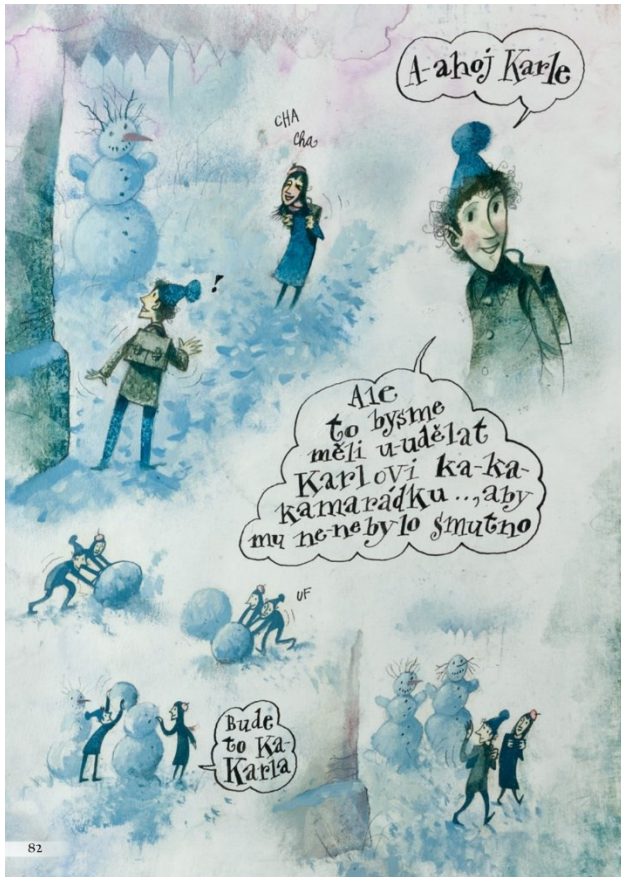 A-ahoj Karle
CHA
cha
!
Ale
to bysme
měli u-udělat
Karlovi ka-ka-
kamarádku..., aby
mu ne-nebylo smutno
UF
Bude
to Ka-
Karla
82